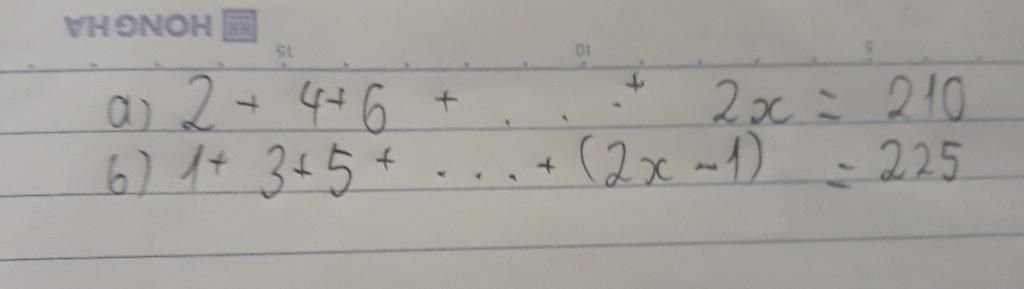 HONG HA
15 10 5
a) 2 + 4 + 6 + ... + 2x = 210
b) 1 + 3 + 5 + .... + (2x - 1) = 225